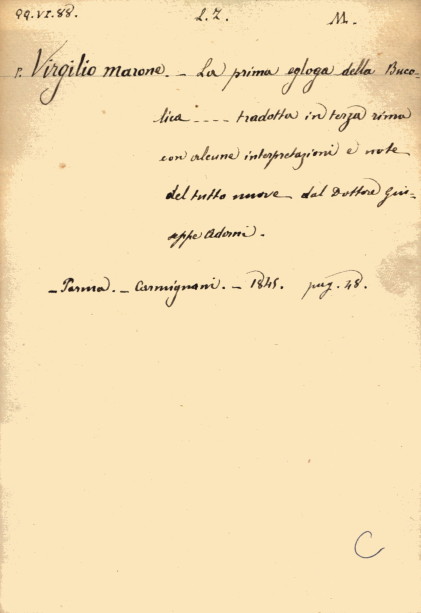 QQ.VI.88. L.Z. M.
P. Virgilio marone. - La prima egloga della Buco-
lica .... tradotta in terza rima
con alcune interpretazioni e note
del tutto nuove dal Dottore Giu-
seppe Adorni.
- Parma. - Carmignani. - 1845. pag. 48.
C